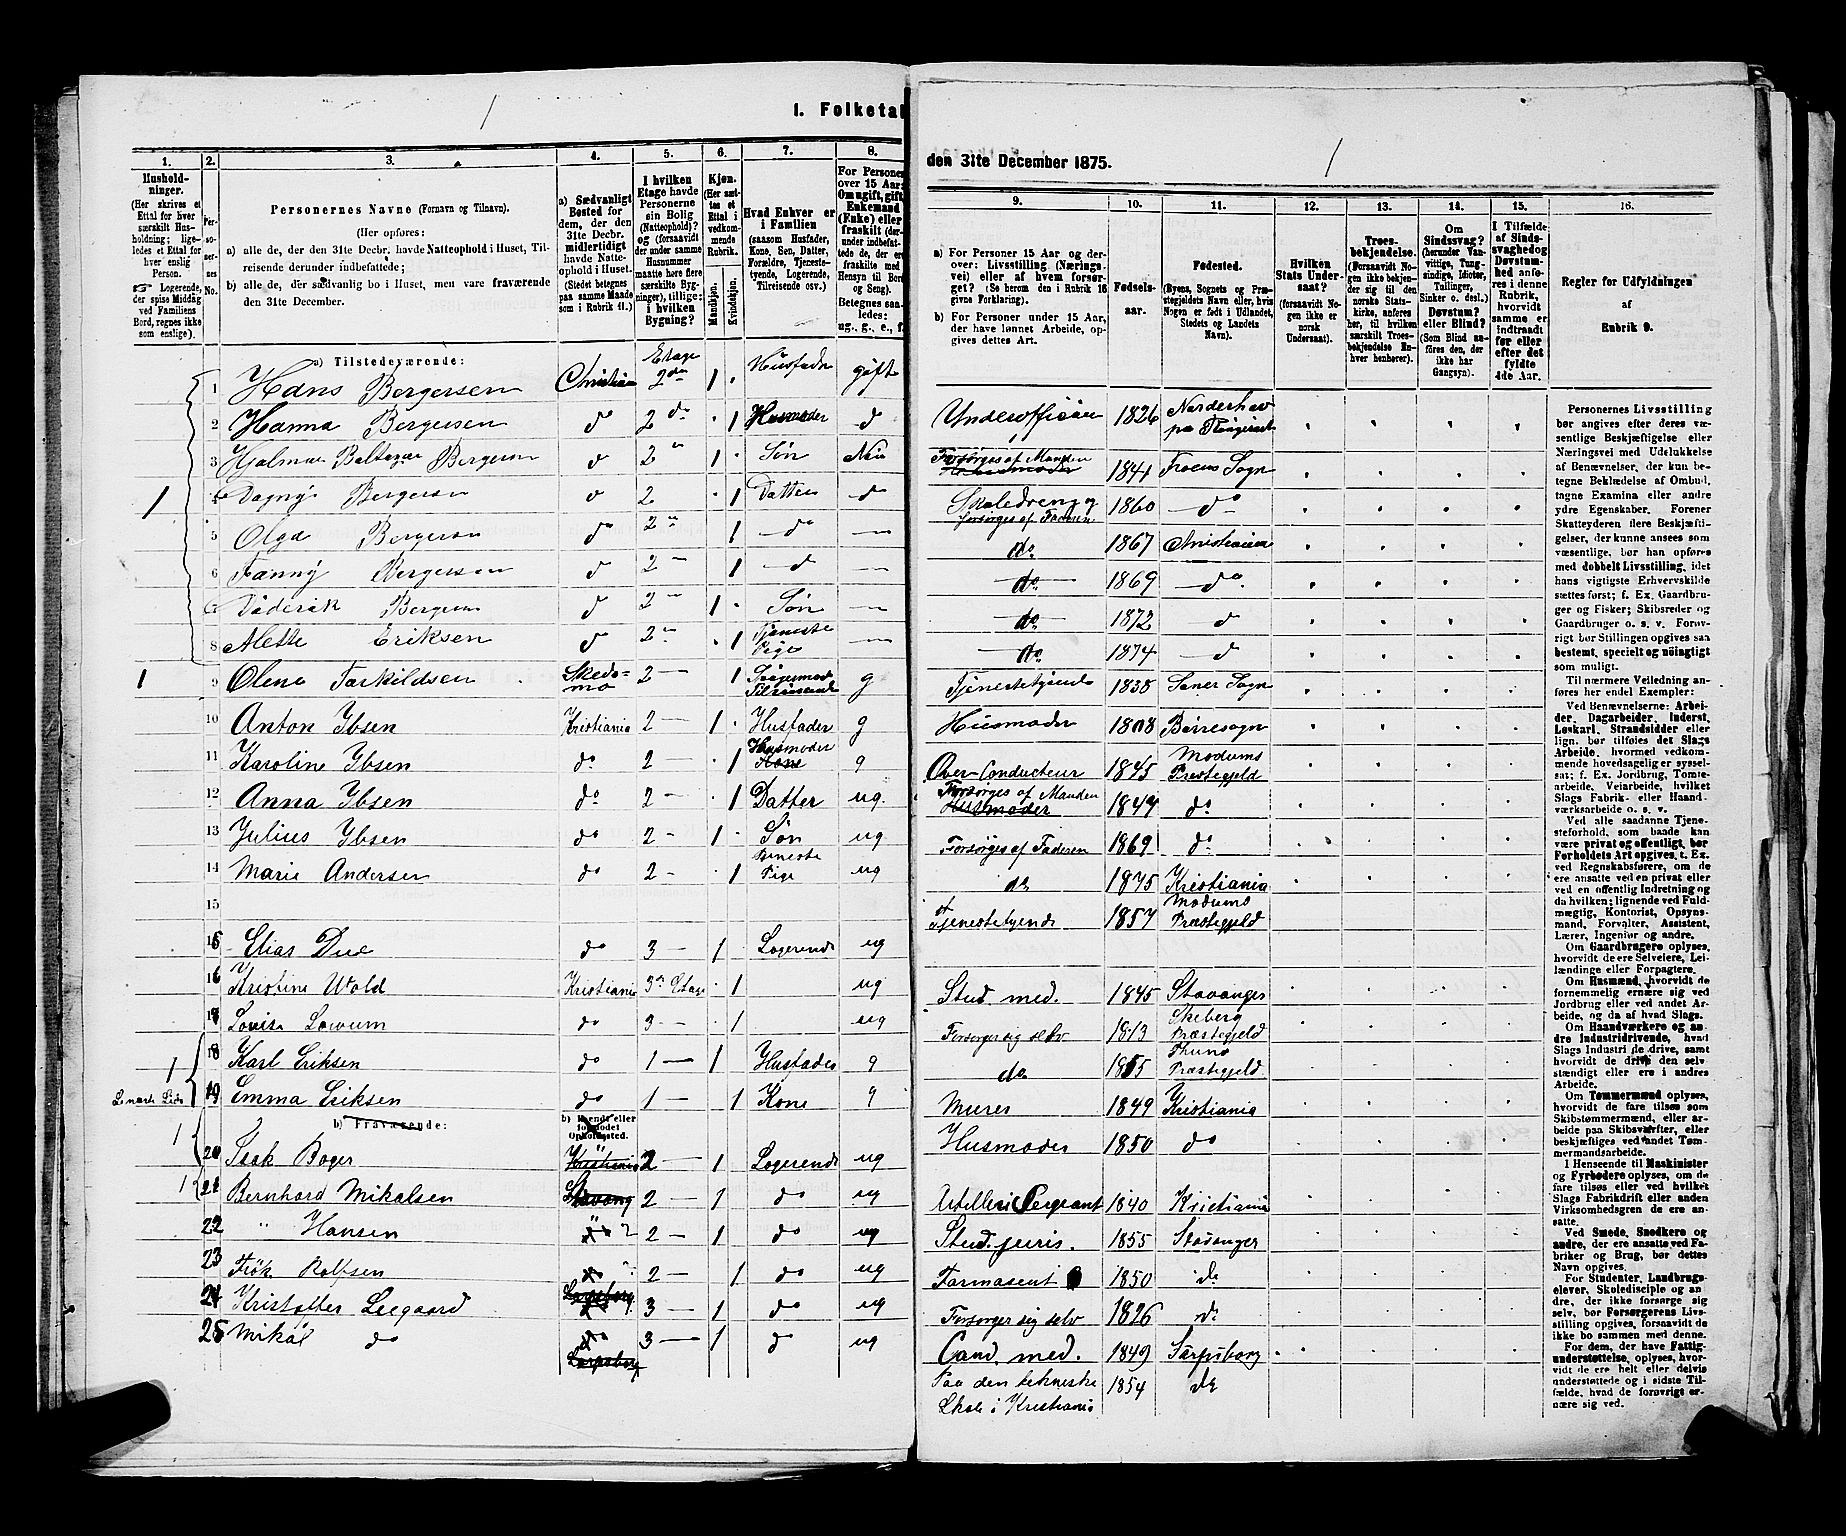 1
I. Folketal
1.
2.
3.
4.
5.
6.
7.
8.
Hushold-
ninger.
(Her skrives et
Ettal for hver
særskilt Hus-
holdning; lige-
ledes et Ettal for
hver enslig
Person.
Logerende,
der spise Middag
ved Familiens
Bord, regnes ikke
som enslige).
Per-
so-
ner-
nes
No.
Personernes Navne (Fornavn og Tilnavn).
(Her opføres:
a) alle de, der den 31te Decbr. havde Natteophold i Huset, Til-
reisende derunder indbefattede;
b) alle de, der sædvanlig bo i Huset, men vare fraværende
den 31te December.
a) Sædvanligt
Bosted for
dem, der den
31te Decbr.
midlertidigt
havde Natte-
ophold i Huset.
(Stedet betegnes
paa samme Maade
som i Rubrik 11.)
I hvilken
Etage havde
Personerne
sin Bolig
(Natteophold)?
og (forsaavidt
der under samme
Husnummer
maatte høre flere
særskilte Byg-
ninger), tillige:
i hvilken
Bygning?
Kjøn.
(Her sæt-
tes et
Ettal i
vedkom-
mende
Rubrik.
Mandkjøn.
Kvindekjøn.
Hvad Enhver er
i Familien
(saasom Husfader,
Kone, Søn, Datter,
Forældre, Tjeneste-
tyende, Logerende,
Tilreisende osv.)
For Personer
over 15 Aar:
Om ugift, gift,
Enkemand
(Enke) eller
fraskilt (der-
under indbefat-
tede de, der ere
fraskilte med
Hensyn til Bord
og Seng).
Betegnes saa-
ledes:
ug., g., e., f.
a) Tilstedeværende:
1 Hans Bergersen Christian Etage 2den 1 Husfader gift
2 Hanna Bergersen do 2 do 1 Husmoder d
3 Hjalmar Baltazar Bergersen d 2 1 Søn
1 4 Dagny Bergersen 2 1 Datter d
5 Olga Bergersen do 2 1 d
6 Fanny Bergersen d 2 1 d
7 Bergersen d 2 1 Søn
8 Mette Eriksen d 2 1 Tjeneste
Pige
1 9 Olena Torkildsen Skeds=
mo 2 1 g
10 Anton Ibsen Kristiania 2 1 Husfader g
11 Karoline Ibsen do 2 1 Husmoder
Kone g
12 Anna Ibsen do 2 1 Datter ug.
13 Julius Ibsen do 2 1 Søn ug
14 Marie Andersen do 2 1 Tjeneste
Pige ug
15
15 Elias Due do 3 1 Logerende ug
16 Kristine Wold Kristiania 3die Etage 1 ug
Lovise do 3 1 ug
1 18 Karl Eriksen do 1 1 Husfader g
19 Emma Eriksen do 1 1 Kone g
b) Fraværende:
1 20 Isak Boger Kristiania 2 1 Logerende ug
1 21 Bernhard Mikalsen Stavang 2 1 do ug
22 " Hansen 2 1 do ug
23 Frøk. Rolfsen do 2 1 do ug
24 Kristoffer Leegaard 3 1 do ug
25 Mikal do do 3 1 d ug
Sarpsborg
den 31te December 1875.
1
9.
10.
11.
12.
13.
14.
15.
16.
a) For Personer 15 Aar og der-
over: Livsstilling (Nærings-
vei) eller af hvem forsør-
get? (Se herom den i Rubrik 16
givne Forklaring).
b) For Personer under 15 Aar,
der have lønnet Arbeide, op-
gives dettes Art.
Fødsels-
aar.
Fødested.
(Byens, Sognets og Præ-
stegjeldets Navn eller, hvis
Nogen er født i Udlandet,
Stedets og Landets
Navn).
Hvilken
Stats Under-
saat?
(forsaavidt No-
gen ikke er
norsk
Undersaat).
Troes-
bekjendelse.
(Forsaavidt No-
gen ikke bekjen-
der sig til den
norske Stats-
kirke, anføres
her, til hvilken
særskilt Troes-
bekjendelse En-
hver henhører).
Om
Sindssvag?
(herunder Van-
vittige, Tung-
sindige, Idioter,
Tullinger,
Sinker o. desl.)
Døvstum?
eller Blind?
(Som Blind an-
føres den, der
ikke har
Gangsyn).
I Tilfælde
af Sinds-
svaghed og
Døvstum-
hed anfø-
res i denne
Rubrik,
hvorvidt
samme er
indtraadt
før eller
efter det
fyldte
4de Aar.
Regler for Udfyldningen
af
Rubrik 9.
Underofficier 1826 Norderhov
paa Ringerike
Forsørges af Manden
Husmoder 1841 Sogn
Skoledreng og
forsørges af Faderen 1860 do
do 1867 Christiania
do 1869 do
do 1872 d
do 1874 d
Tjenestetyende 1838 Sogn
Husmoder 1808
Over-Conducteur 1845 Modums
Præstegjeld
Forsørges af Manden
Husmoder 1847 do
Forsørges af Faderen 1869 do
do 1875 Kristiania
Tjenestetyende 1857 Modums
Præstegjeld
Stud. med. 1845 Stavanger
Forsørger sig selv 1813 Skeberg
Præstegjeld
do Præstegjeld
Murer 1849 Kristiania
Husmoder 1850 do
Artelleri Sergeant 1840 Kristiania
Stud. juris. 1855 Stavanger
Farmaseut 1850 do
Forsørger sig selv 1826 do
Cand. med. 1849 Sarpsborg
Paa den tekniske
Skole i Kristiania 1854 do
Personernes Livsstilling
bør angives efter deres væ-
sentlige Beskjæftigelse eller
Næringsvei med Udelukkelse
af Benævnelser, der kun be-
tegne Beklædelse af Ombud,
tagne Examina eller andre
ydre Egenskaber. Forener
Skatteyderen flere Beskjæfti-
gelser, der kunne ansees som
væsentlige, bør han opføres
med dobbelt Livsstilling, idet
hans vigtigste Erhvervskilde
sættes først; f. Ex. Gaardbru-
ger og Fisker; Skibsreder og
Gaardbruger o. s. v. Forøv-
rigt bør Stillingen opgives saa
bestemt, specielt og nöiagtigt
som muligt.
Til nærmere Veiledning an-
føres her endel Exempler:
Ved Benævnelserne: Arbei-
der, Dagarbeider, Inderst,
Løskarl, Strandsidder eller
lign. bør tilføies det Slags
Arbeide, hvormed vedkom-
mende hovedsagelig er syssel-
sat; f. Ex. Jordbrug, Tomte-
arbeide, Veiarbeide, hvilket
Slags Fabrik- eller Haand-
værksarbeide o. s. v.
Ved alle saadanne Tjene-
steforhold, som baade kan
være privat og offentligt, bør
Forholdets Art opgives, t. Ex.
ved Regnskabsførere, om de
ere ansatte ved en privat eller
ved en offentlig Indretning og
da hvilken; lignende ved Fuld-
mægtig, Kontorist, Opsyns-
mand, Forvalter, Assistent,
Lærer, Ingeniør og andre.
Om Gaardbrugere oplyses,
hvorvidt de ere Selveiere, Lei-
lændinge eller Forpagtere.
Om Husmænd, hvorvidt de
fornemmelig ernære sig ved
Jordbrug eller ved andet Ar-
beide, og da af hvad Slags.
Om Haandværkere og an-
dre industridrivende, hvad
Slags Industri de drive, samt
hvorvidt de drive den selv-
stændigt eller ere i andres
Arbeide.
Om Tømmermænd oplyses,
hvorvidt de fare tilsøs som
Skibstømmermænd, eller ar-
beide paa Skibsværfter, eller
beskjæftiges ved andet Tøm-
mermandsarbeide.
I Henseende til Maskinister
og Fyrbødere oplyses, om de
fare tilsøs eller ved hvilket
Slags Fabrikdrift eller anden
Virksomhedsgren de ere an-
satte.
Ved Smede, Snedkere og
andre, der ere ansatte ved Fa-
briker og Brug, bør dettes
Navn opgives.
For Studenter, Landbrugs-
elever, Skoledisciple og an-
dre, der ikke forsørge sig
selv, bør Forsørgerens Livs-
stilling opgives, forsaavidt de
ikke bo sammen med denne.
For dem, der have Fattig-
understøttelse, oplyses, hvor-
vidt de ere helt eller delvis
understøttede og i sidste Til-
fælde, hvad de forøvrigt er-
nære sig ved.